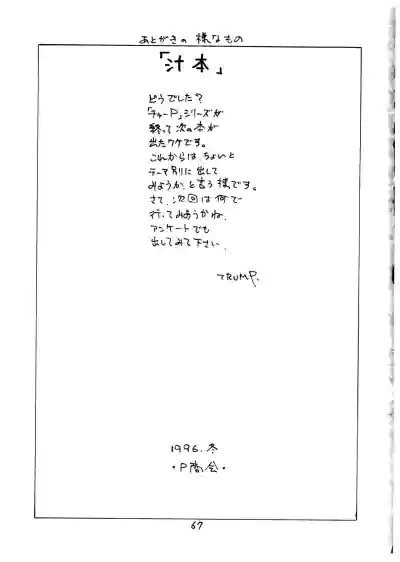 あとがきの様なもの
「汁本」
どうでした？
「チャーP」シリーズが
終って次の本が
出たワケです。
これからは、ちょいと
テーマ別に出して
みようかと言う様です。
さて、次回は何で
行ってみようかね。
アンケートでも
出してみて下さい。
TRUMP.
1996.冬
・P商会・
67